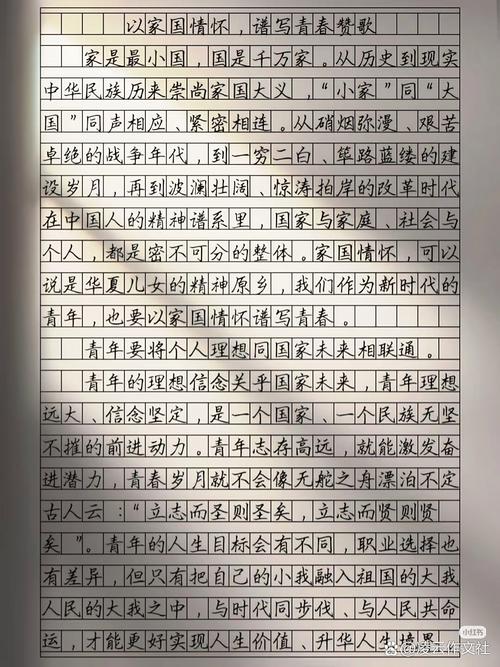 以家国情怀，谱写青春赞歌
家是最小国，国是千万家。从历史到现实
中华民族历来崇尚家国大义，“小家”同“大
国”同声相应、紧密相连。从硝烟弥漫、艰苦
卓绝的战争年代，到一穷二白、筚路蓝缕的建
设岁月，再到波澜壮阔、惊涛拍岸的改革时代
在中国人的精神谱系里，国家与家庭、社会与
个人，都是密不可分的整体。家国情怀，可以
说是华夏儿女的精神原乡，我们作为新时代的
青年，也要以家国情怀谱写青春。
青年要将个人理想同国家未来相联通。
青年的理想信念关乎国家未来，青年理想
远大、信念坚定，是一个国家、一个民族无坚
不摧的前进动力。青年志存高远，就能激发奋
进潜力，青春岁月就不会像无舵之舟漂泊不定
古人云：“立志而圣则圣矣，立志而贤则贤
矣”。青年的人生目标会有不同，职业选择也
有差异，但只有把自己的小我融入祖国的大我
人民的大我之中，与时代同步伐、与人民共命
运，才能更好实现人生价值、升华人生境界
小红书
@凌云作文社